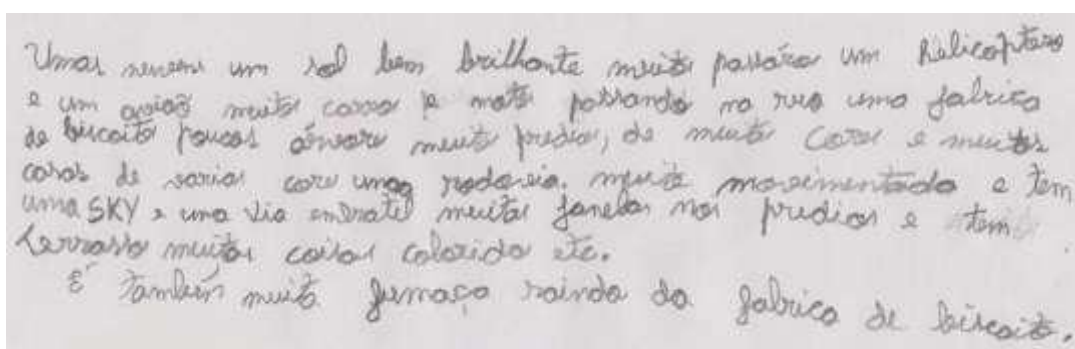 Umas nuvens um sol bem brilhante muito passáro um helicoptero
e um avião muito carro e moto passando na rua uma fabrica
de biscoito poucas árvore muito predio, de muito cores e muitos
casas de varias core umas rodovia. muito movimentada e tem
uma SKY e uma via muitas janelas nos predios e tem
terrasso muitos coisas colorido etc.
E também muito fumaça sainda da fabrica de biscoito.